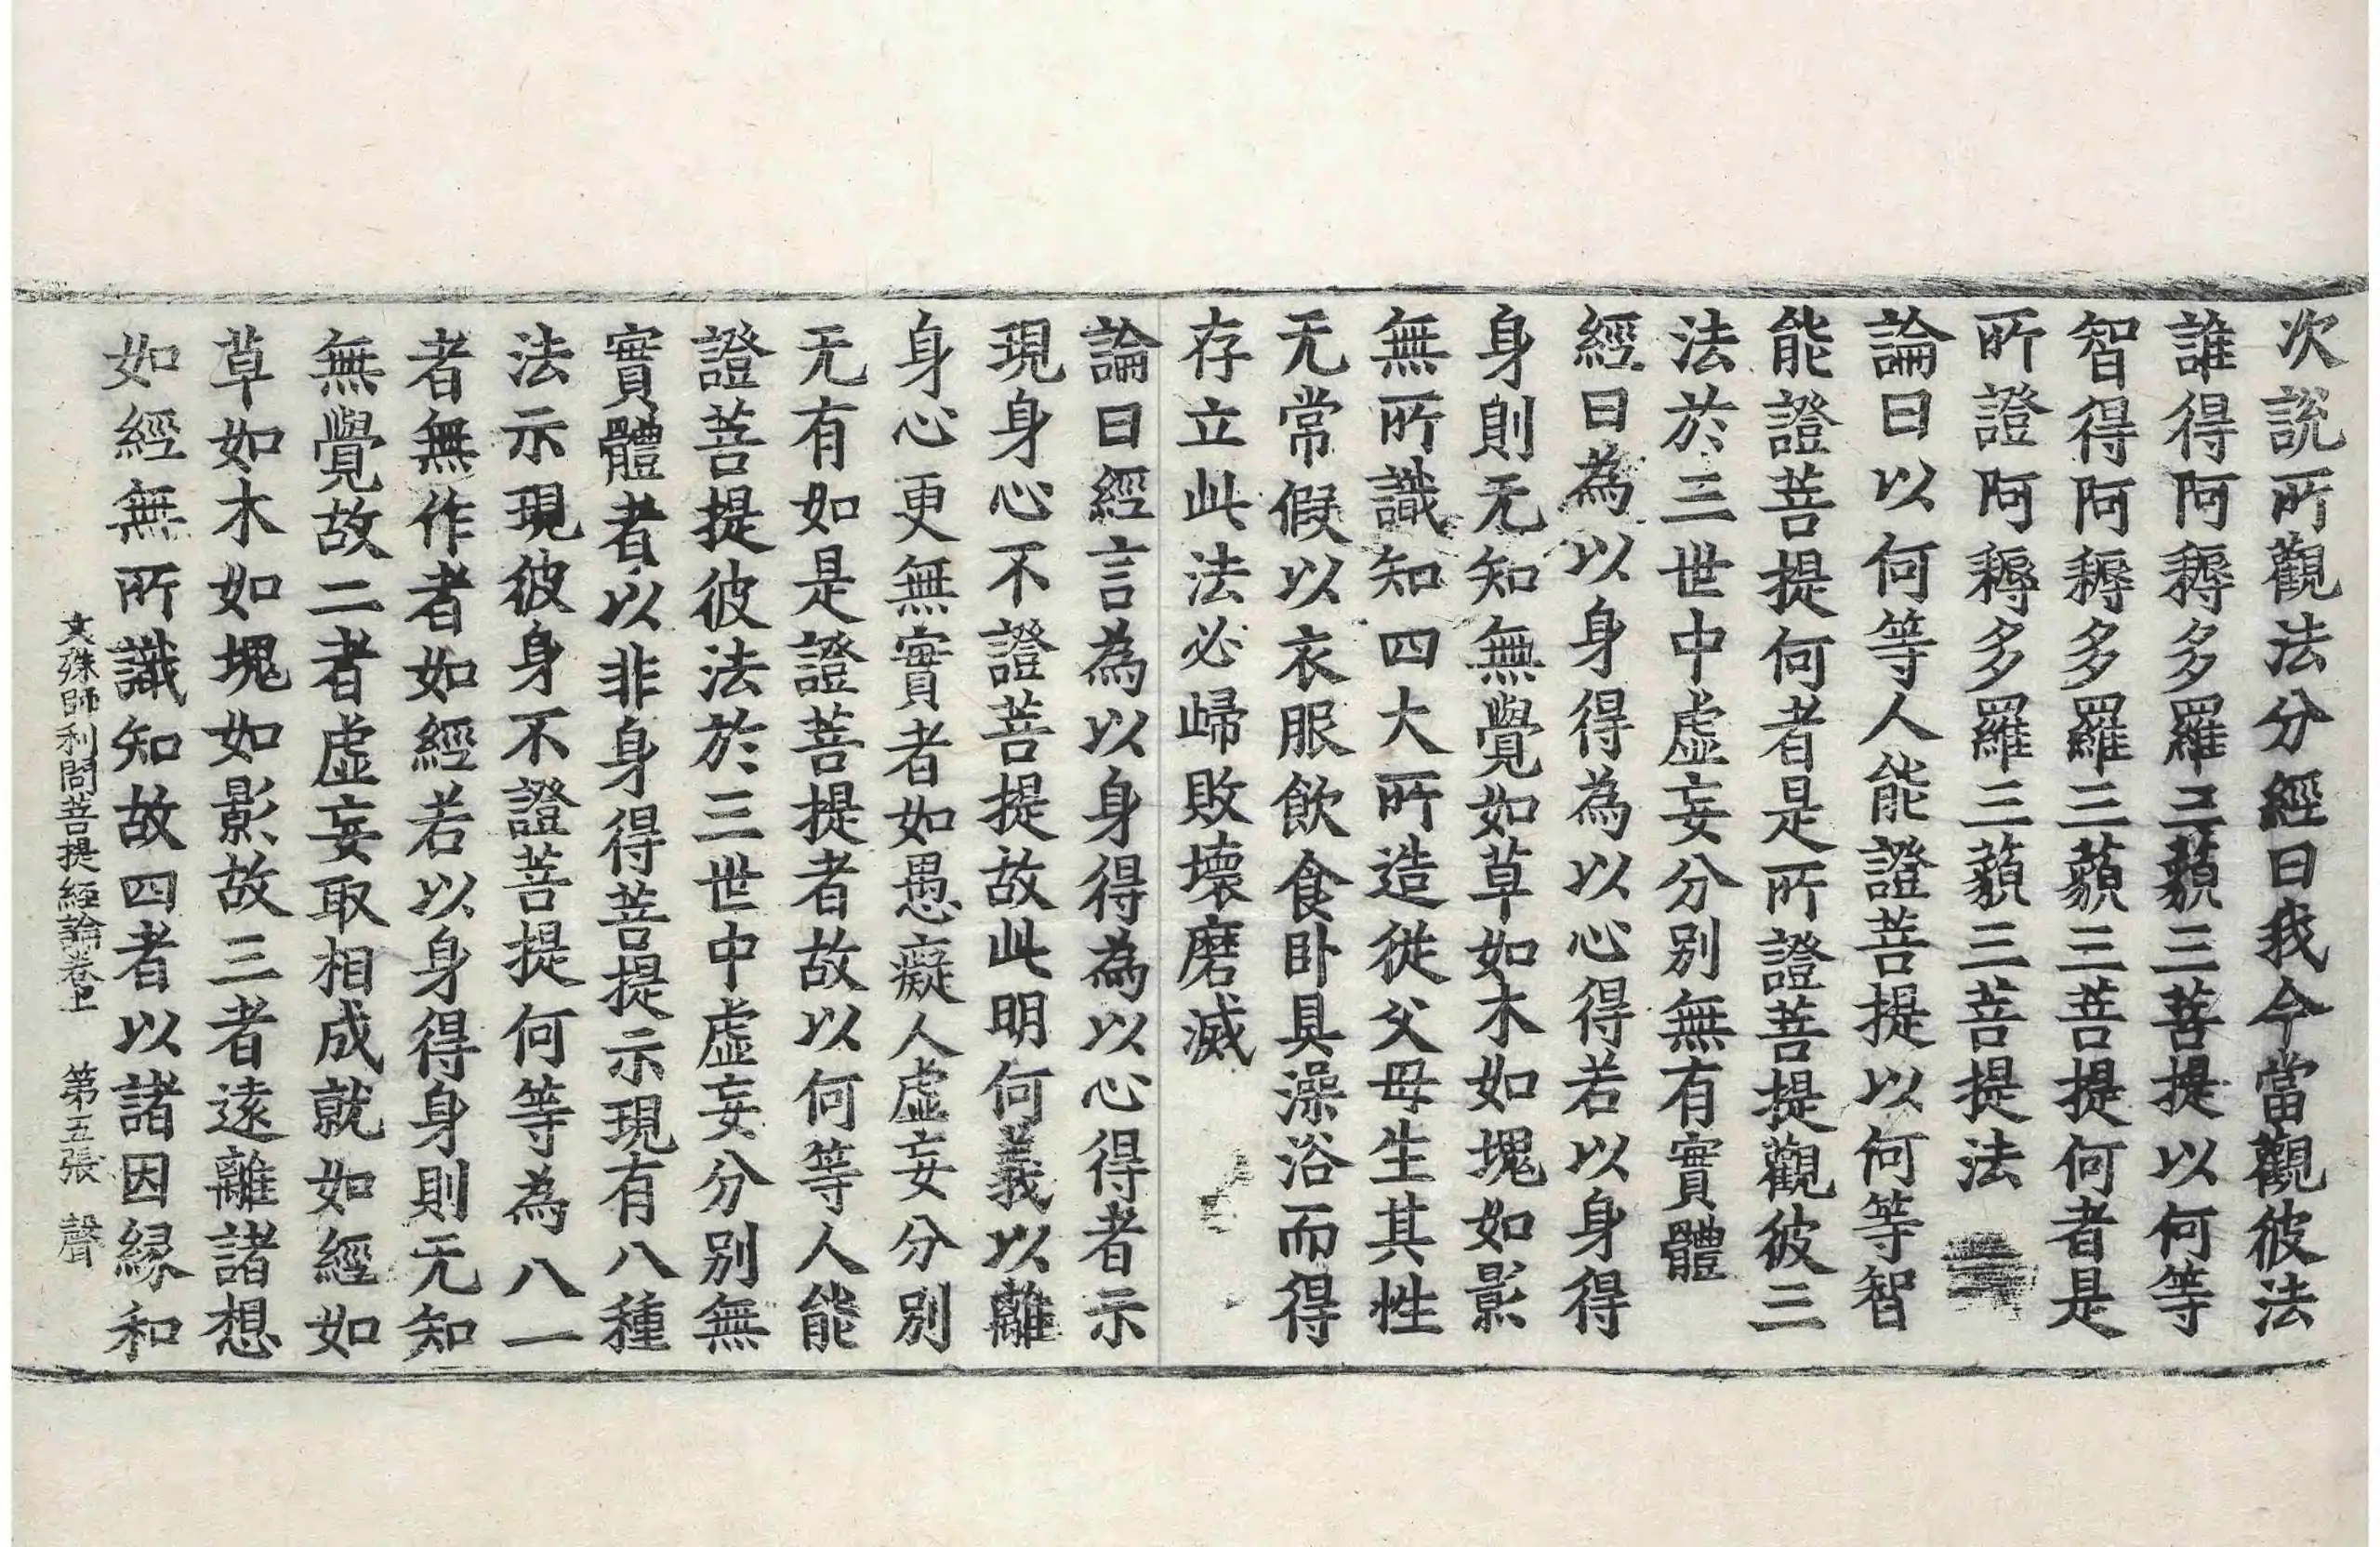 次說所觀法分經曰我今當觀彼法
誰得阿耨多羅三藐三菩提以何等
智得阿耨多羅三藐三菩提何者是
所證阿耨多羅三藐三菩提法
論曰以何等人能證菩提以何等智
能證菩提何者是所證菩提觀彼三
法於三世中虛妄分別無有實體
經曰為以身得為以心得若以身得
身則无知無覺如草如木如塊如影
無所識知四大所造從父母生其性
无常假以衣服飲食卧具澡浴而得
存立此法必歸敗壞磨滅
論曰經言為以身得為以心得者示
現身心不證菩提故此明何義以離
身心更無實者如愚癡人虛妄分別
无有如是證菩提者故以何等人能
證菩提彼法於三世中虛妄分別無
實體者以非身得菩提示現有八種
法示現彼身不證菩提何等為八一
者無作者如經若以身得身則无知
無覺故二者虛妄取相成就如經如
草如木如塊如影故三者遠離諸想
如經無所識知故四者以諸因緣和
文殊師利問菩提經論卷上 第五張 聲